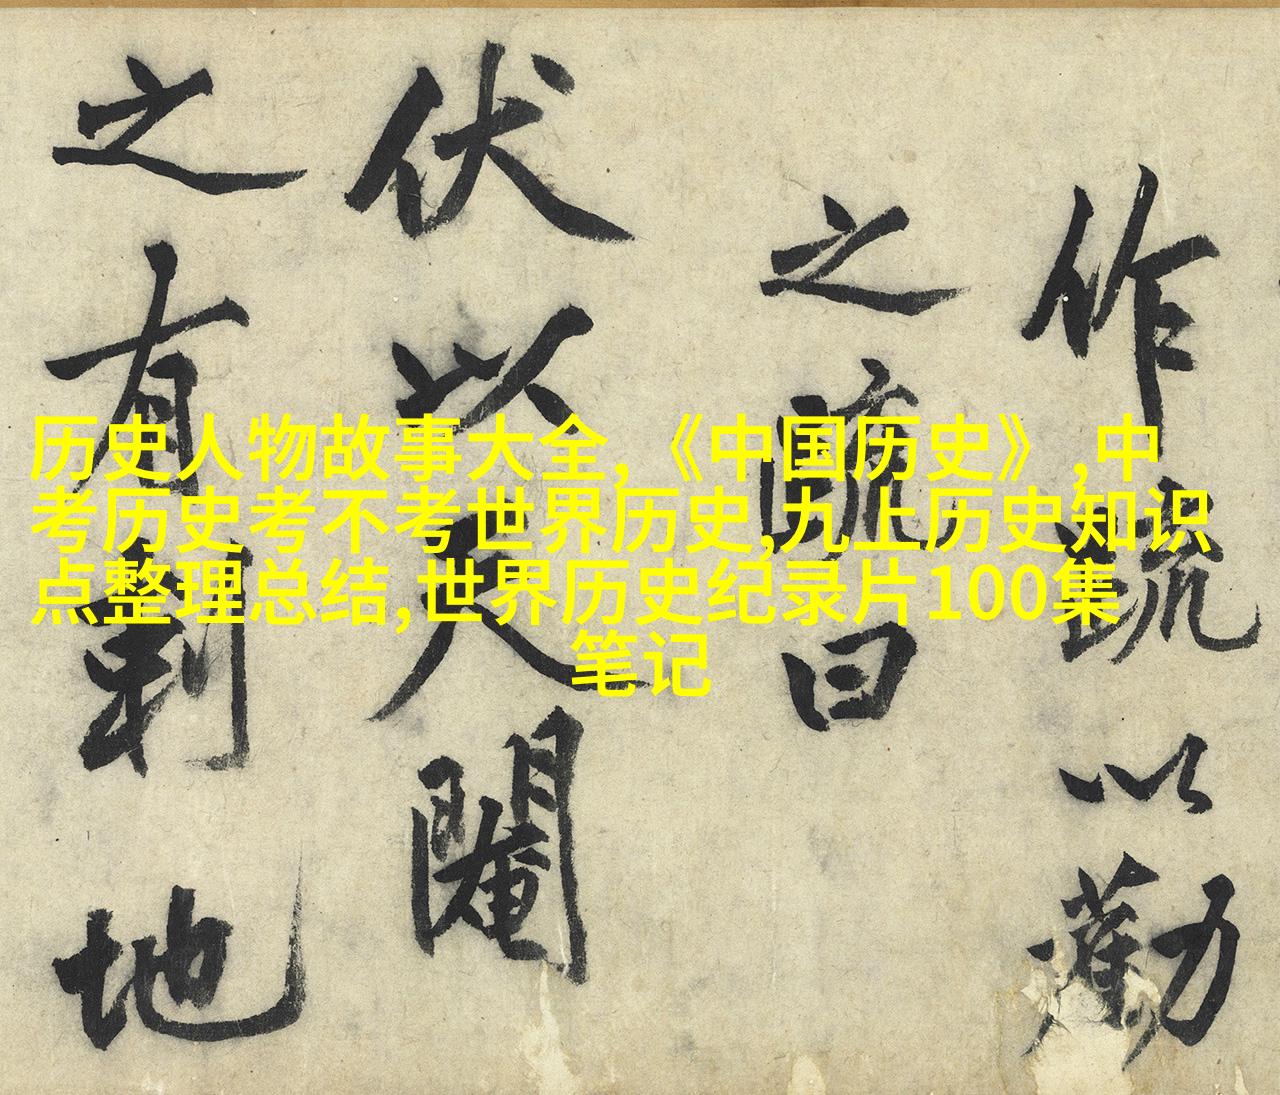 作疏以勸
之疏曰
伏以閹
之有利地
历史人物故事大全,《中国历史》,中
考历史考不考世界历史,九上历史知识
点整理总结,世界历史纪录片100集
笔记